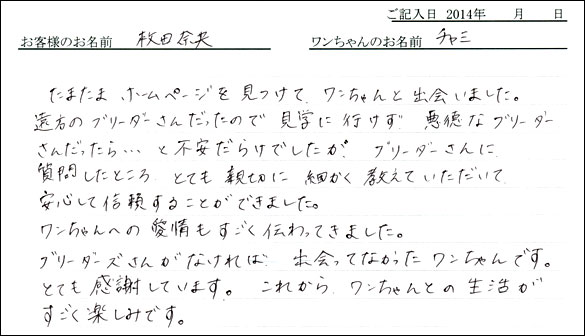 ご記入日 2014年　月　日
お客様のお名前 枚田奈央 ワンちゃんのお名前 チャミ
たまたま ホームページを見つけて、ワンちゃんと出会いました。
遠方のブリーダーさんだったので 見学に行けず 悪徳なブリーダー
さんだったら… と不安だらけでしたが、ブリーダーさんに
質問したところ とても親切に 細かく教えていただいて
安心して信頼することができました。
ワンちゃんへの愛情もすごく伝わってきました。
ブリーダーズさんがなければ 出会ってなかったワンちゃんです。
とても感謝しています。 これから、ワンちゃんとの生活が
すごく楽しみです。